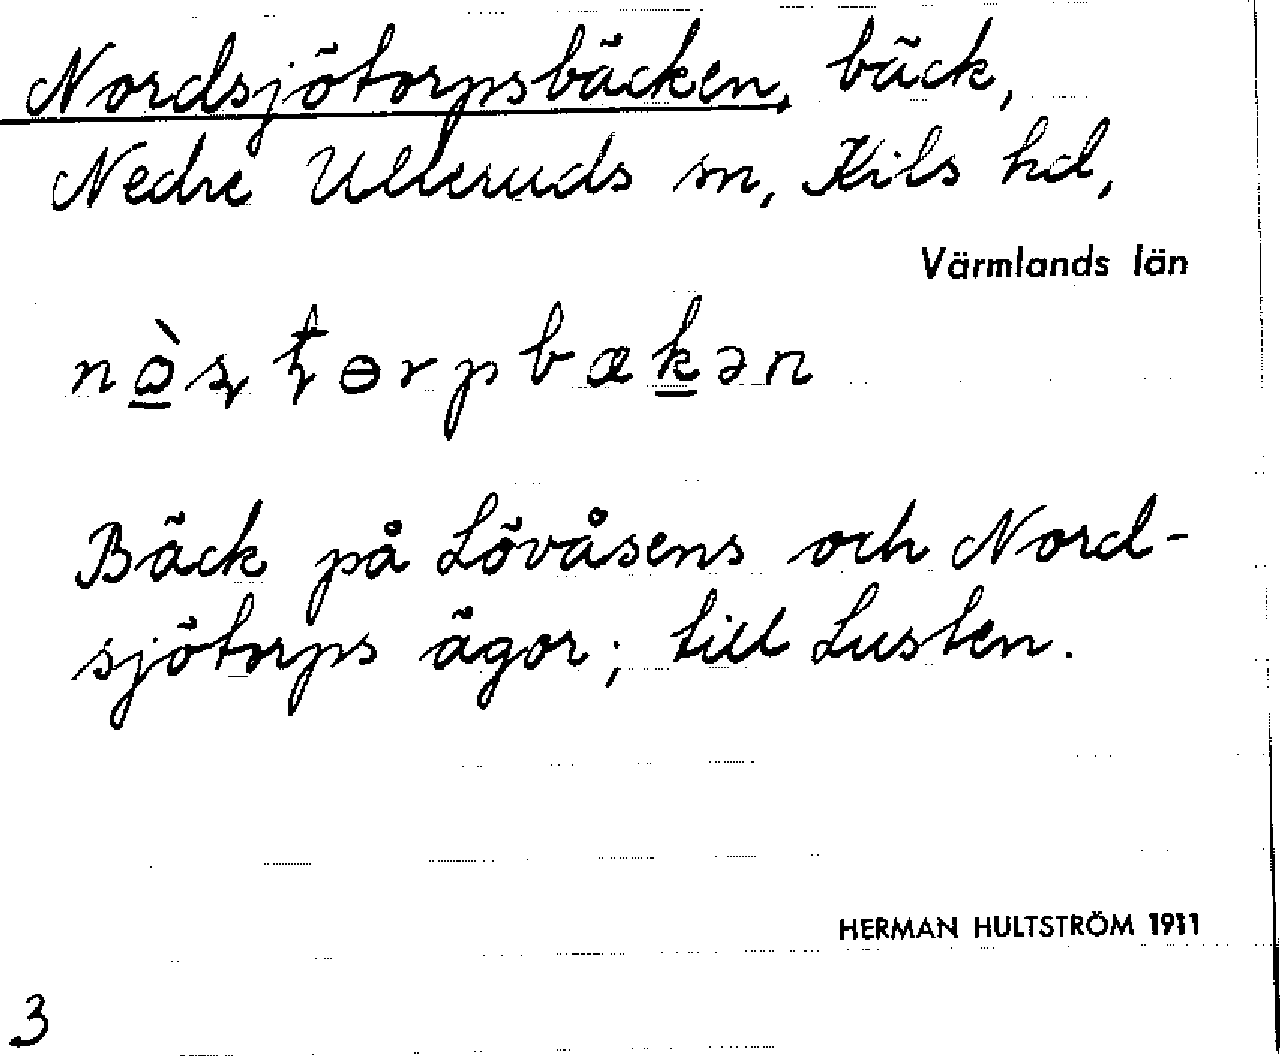 Nordsjötorpsbäcken, bäck,
Nedre Ulleruds sn, Kils hd,
Värmlands län
Bäck på Lövåsens och Nord-
sjötorps ägor; till Lusten.
HERMAN HULTSTRÖM 1911
3